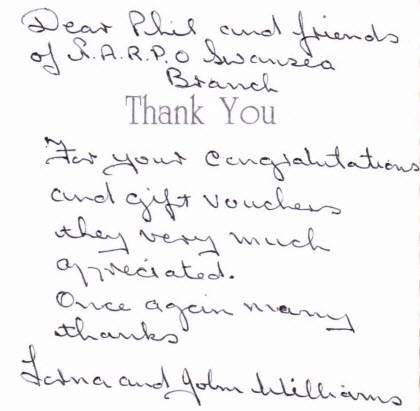 Dear Phil and friends
of N.A.R.P.O Swansea
Branch
Thank You
For your congratutations
and gift vouchers
they very much
appreciated.
Once again many
thanks
Lorna and John Williams